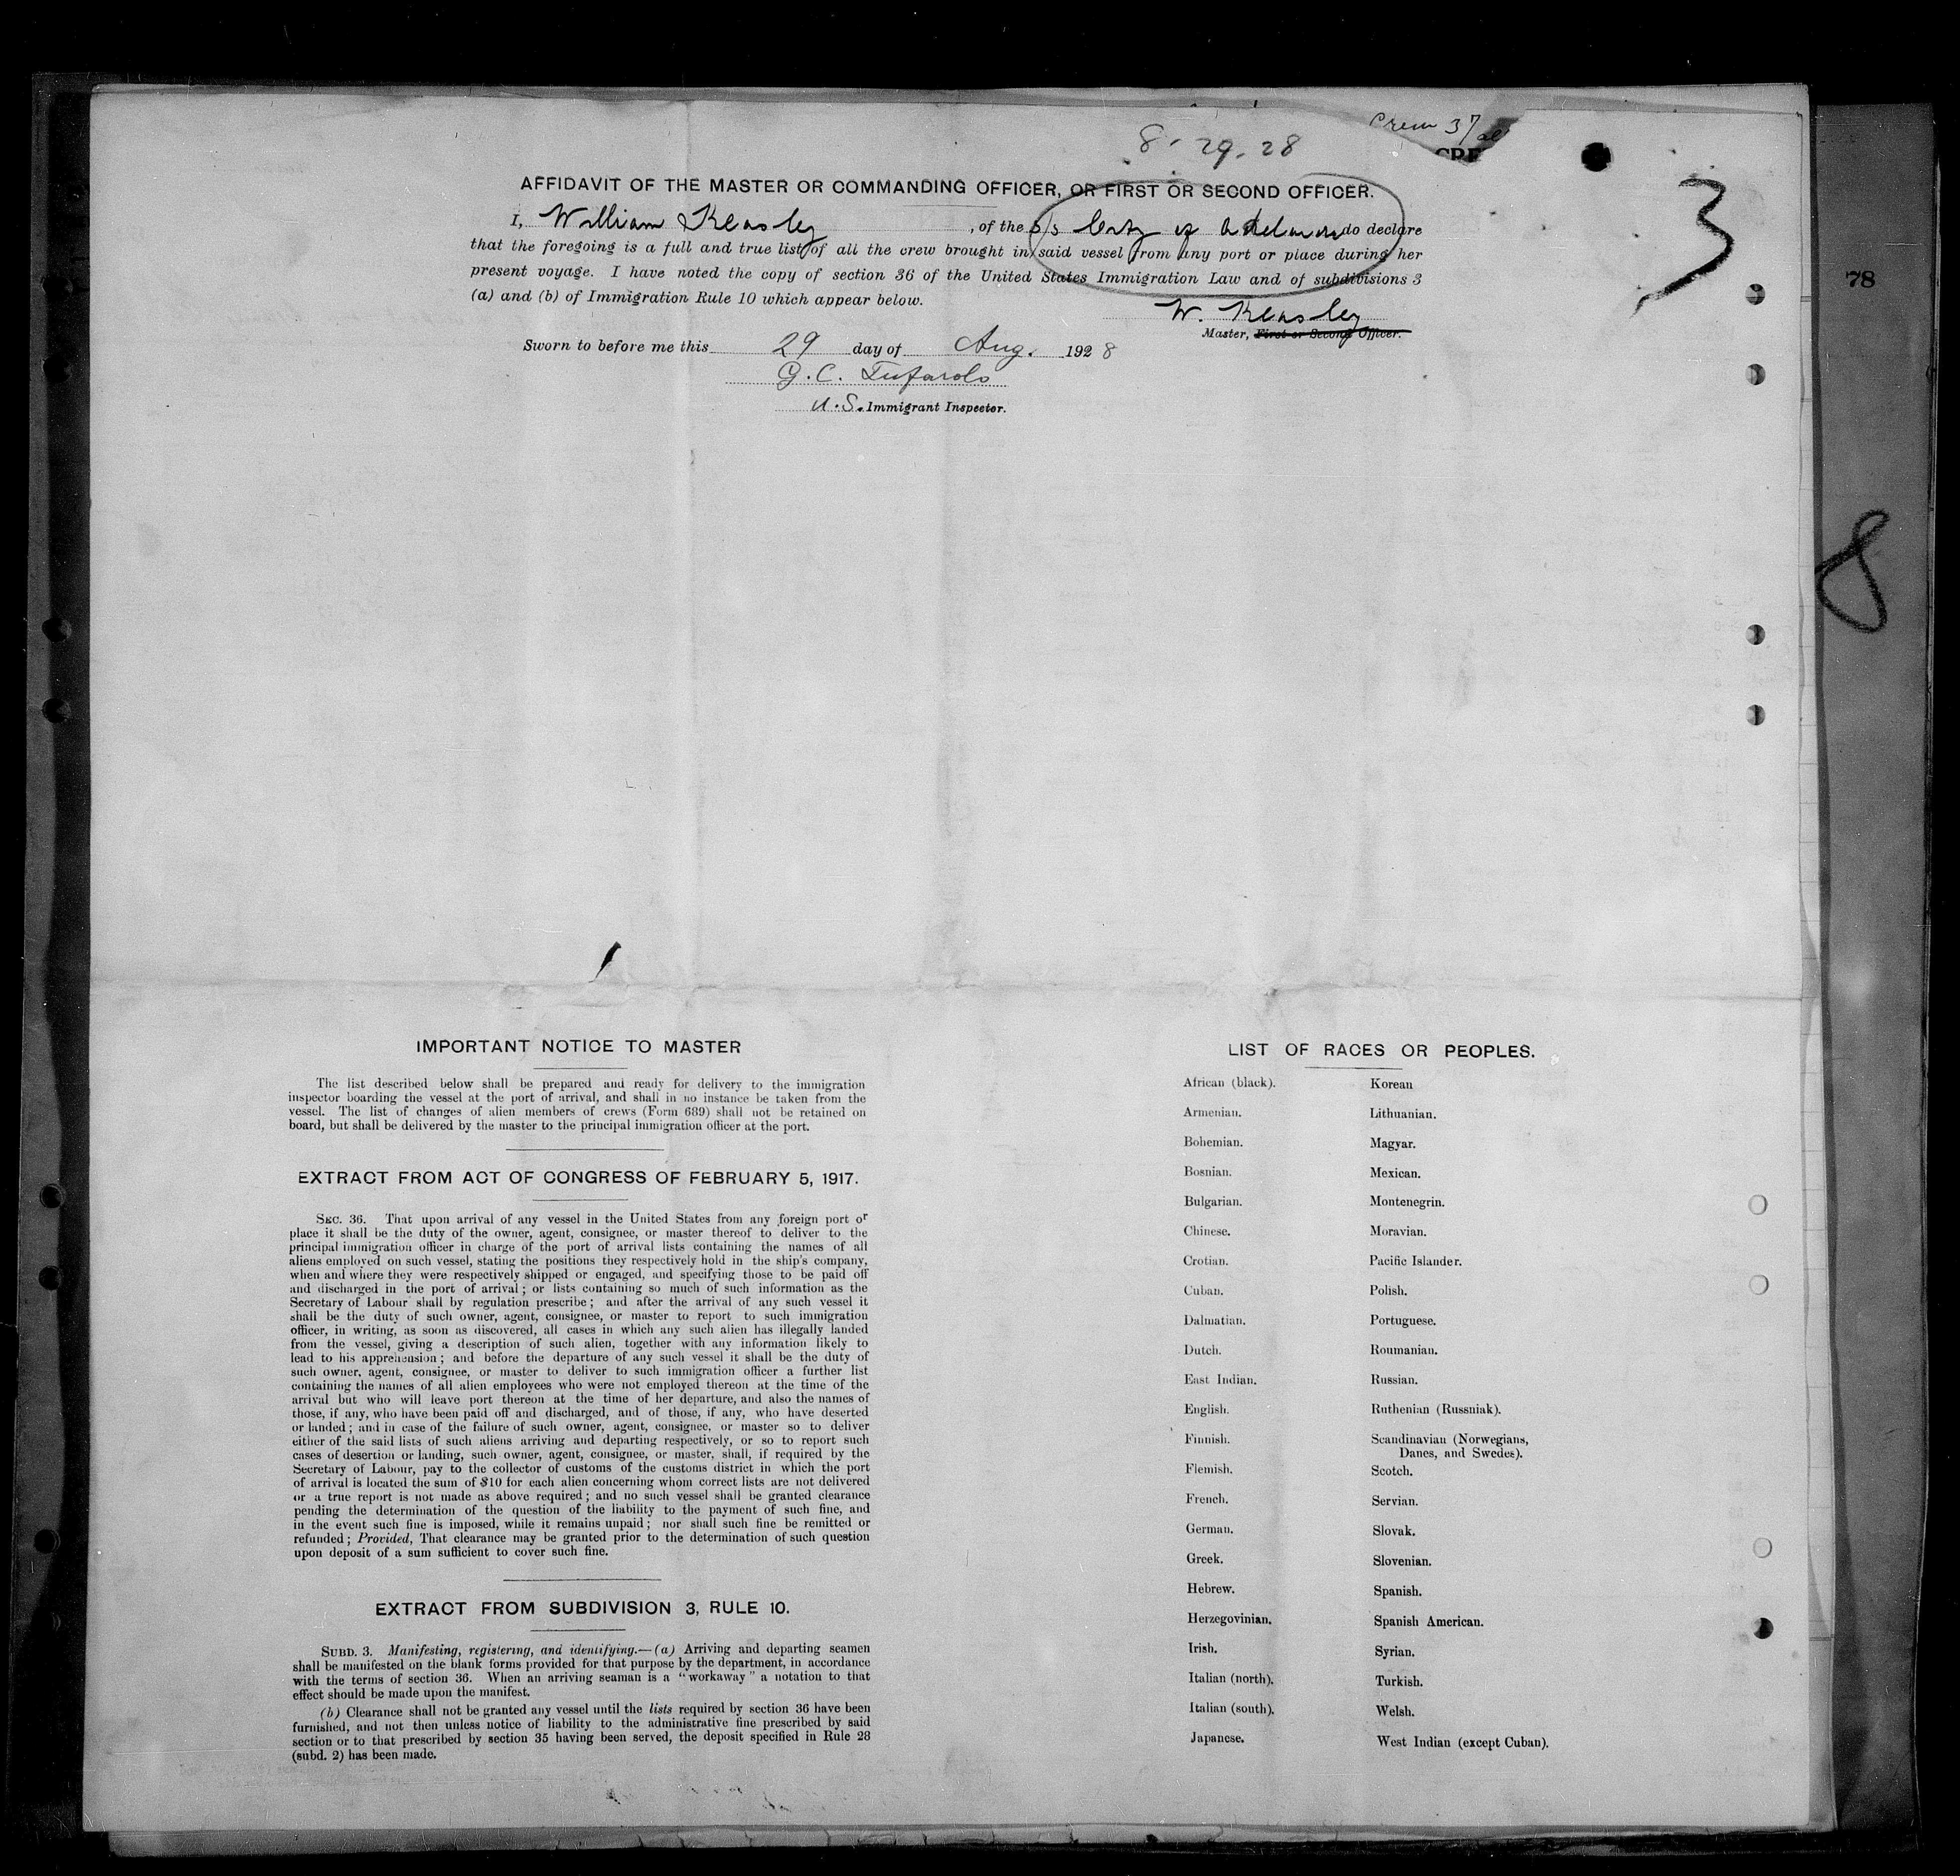 Crew 37
8-29-28
CRE
3
AFFIDAVIT OF THE MASTER OR COMMANDING OFFICER, OR FIRST OR SECOND OFFICER.
I, William Keasley, of the s/s do declare
that the foregoing is a full and true list of all the crew brought in said vessel from any port or place during her
present voyage. I have noted the copy of section 36 of the United States Immigration Law and of subdivisions 3
(a) and (b) of Immigration Rule 10 which appear below.
W. Keasley
Master, First or Second Officer.
Sworn to before me this 29 day of Aug. 1928
G. C. Tufarolo
U.S. Immigrant Inspector.
78
8
IMPORTANT NOTICE TO MASTER
The list described below shall be prepared and ready for delivery to the immigration
inspector boarding the vessel at the port of arrival, and shall in no instance be taken from the
vessel. The list of changes of alien members of crews (Form 689) shall not be retained on
board, but shall be delivered by the master to the principal immigration officer at the port.
EXTRACT FROM ACT OF CONGRESS OF FEBRUARY 5, 1917.
SEC. 36. That upon arrival of any vessel in the United States from any foreign port or
place it shall be the duty of the owner, agent, consignee, or master thereof to deliver to the
principal immigration officer in charge of the port of arrival lists containing the names of all
aliens employed on such vessel, stating the positions they respectively hold in the ship's company,
when and where they were respectively shipped or engaged, and specifying those to be paid off
and discharged in the port of arrival; or lists containing so much of such information as the
Secretary of Labour shall by regulation prescribe; and after the arrival of any such vessel it
shall be the duty of such owner, agent, consignee, or master to report to such immigration
officer, in writing, as soon as discovered, all cases in which any such alien has illegally landed
from the vessel, giving a description of such alien, together with any information likely to
lead to his apprehension; and before the departure of any such vessel it shall be the duty of
such owner, agent, consignee, or master to deliver to such immigration officer a further list
containing the names of all alien employees who were not employed thereon at the time of the
arrival but who will leave port thereon at the time of her departure, and also the names of
those, if any, who have been paid off and discharged, and of those, if any, who have deserted
or landed; and in case of the failure of such owner, agent, consignee, or master so to deliver
either of the said lists of such aliens arriving and departing respectively, or so to report such
cases of desertion or landing, such owner, agent, consignee, or master, shall, if required by the
Secretary of Labour, pay to the collector of customs of the customs district in which the port
of arrival is located the sum of $10 for each alien concerning whom correct lists are not delivered
or a true report is not made as above required; and no such vessel shall be granted clearance
pending the determination of the question of the liability to the payment of such fine, and
in the event such fine is imposed, while it remains unpaid; nor shall such fine be remitted or
refunded; Provided, That clearance may be granted prior to the determination of such question
upon deposit of a sum sufficient to cover such fine.
EXTRACT FROM SUBDIVISION 3, RULE 10.
SUBD. 3. Manifesting, registering, and identifying.—(a) Arriving and departing seamen
shall be manifested on the blank forms provided for that purpose by the department, in accordance
with the terms of section 36. When an arriving seaman is a "workaway" a notation to that
effect should be made upon the manifest.
(b) Clearance shall not be granted any vessel until the lists required by section 36 have been
furnished, and not then unless notice of liability to the administrative fine prescribed by said
section or to that prescribed by section 35 having been served, the deposit specified in Rule 28
(subd. 2) has been made.
LIST OF RACES OR PEOPLES.
African (black).
Armenian.
Bohemian.
Bosnian.
Bulgarian.
Chinese.
Crotian.
Cuban.
Dalmatian.
Dutch.
East Indian.
English.
Finnish.
Flemish.
French.
German.
Greek.
Hebrew.
Herzegovinian.
Irish.
Italian (north).
Italian (south).
Japanese.
Korean
Lithuanian.
Magyar.
Mexican.
Montenegrin.
Moravian.
Pacific Islander.
Polish.
Portuguese.
Roumanian.
Russian.
Ruthenian (Russniak).
Scandinavian (Norwegians,
Danes, and Swedes).
Scotch.
Servian.
Slovak.
Slovenian.
Spanish.
Spanish American.
Syrian.
Turkish.
Welsh.
West Indian (except Cuban).